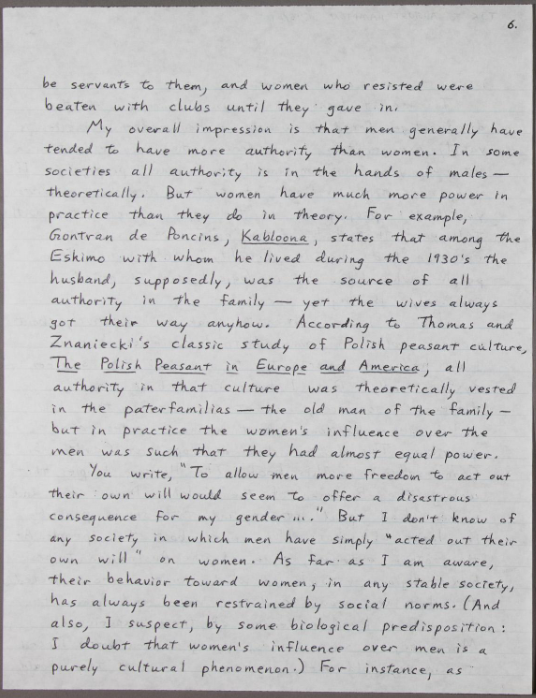 6.
be servants to them, and women who resisted were
beaten with clubs until they gave in.
My overall impression is that men generally have
tended to have more authority than women. In some
societies all authority is in the hands of males —
theoretically. But women have much more power in
practice than they do in theory. For example,
Gontran de Poncins, Kabloona, states that among the
Eskimo with whom he lived during the 1930's the
husband, supposedly, was the source of all
authority in the family — yet the wives always
got their way anyhow. According to Thomas and
Znaniecki's classic study of Polish peasant culture,
The Polish Peasant in Europe and America, all
authority in that culture was theoretically vested
in the paterfamilias — the old man of the family —
but in practice the women's influence over the
men was such that they had almost equal power.
You write, "To allow men more freedom to act out
their own will would seem to offer a disastrous
consequence for my gender ...." But I don't know of
any society in which men have simply "acted out their
own will" on women. As far as I am aware,
their behavior toward women, in any stable society,
has always been restrained by social norms. (And
also, I suspect, by some biological predisposition:
I doubt that women's influence over men is a
purely cultural phenomenon.) For instance, as